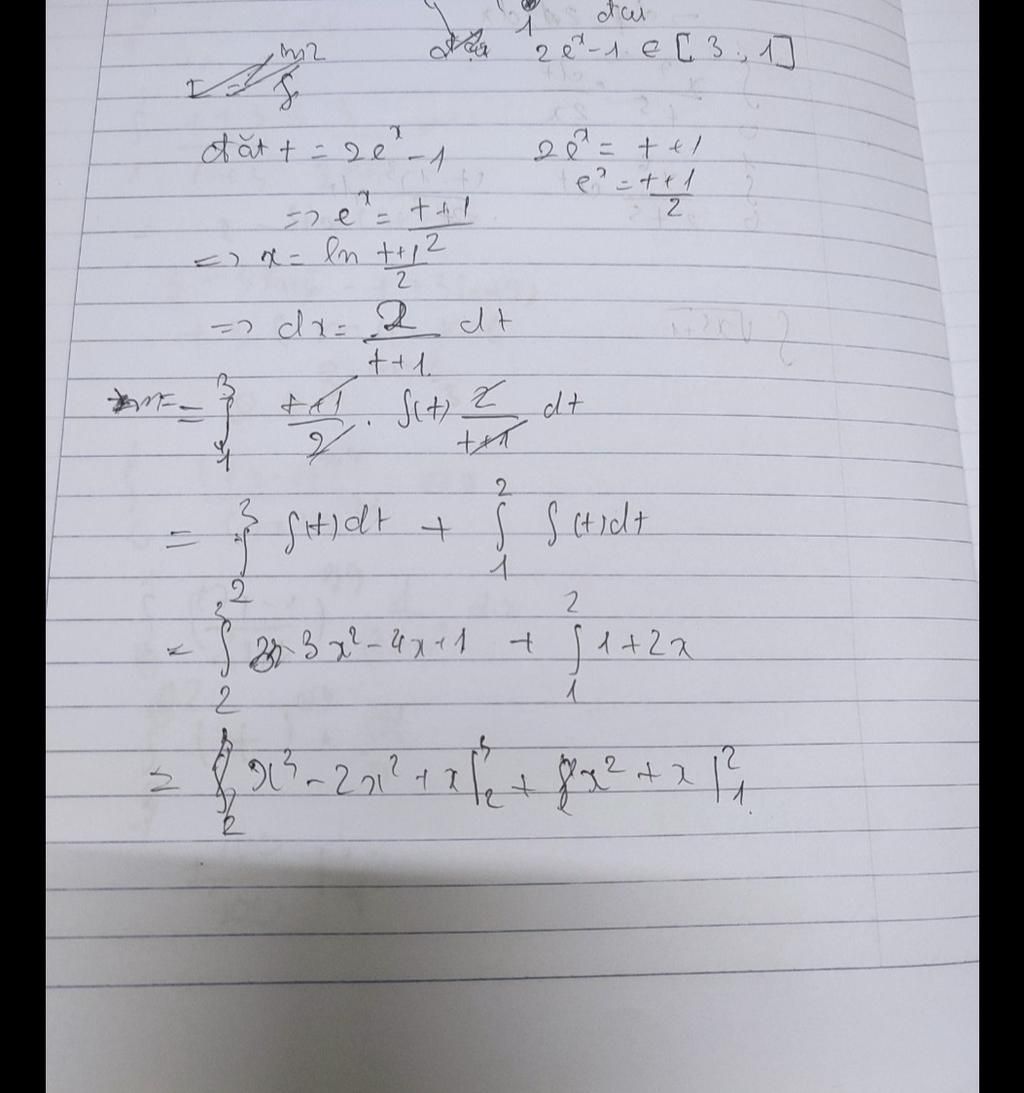 1 đai
2e^x - 1 ∈ [3; 1]
I = ∫ ln2
đăt t = 2e^x - 1 2e^x = t + 1
e^x = (t + 1)/2
=> e^x = (t + 1)/2
=> x = ln (t+1)/2
=> dx = 2/(t+1) dt
= ∫_1^3 (t+1)/2 . f(t) 2/(t+1) dt
= ∫_2^3 f(t)dt + ∫_1^2 f(t)dt
= ∫_2^3 3x² - 4x + 1 + ∫_1^2 1 + 2x
= x³ - 2x² + x |_2^3 + x² + x |_1^2